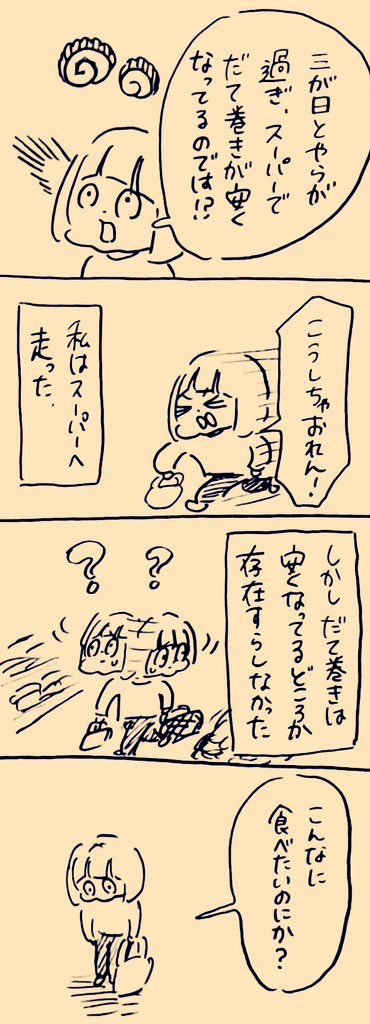 三が日とやらが
過ぎ、スーパーで
だて巻きが安く
なってるのでは!?
こうしちゃおれん!
私はスーパーへ
走った.
しかしだて巻きは
安くなってるどころか
存在すらしなかった
? ?
こんなに
食べたいのにか?